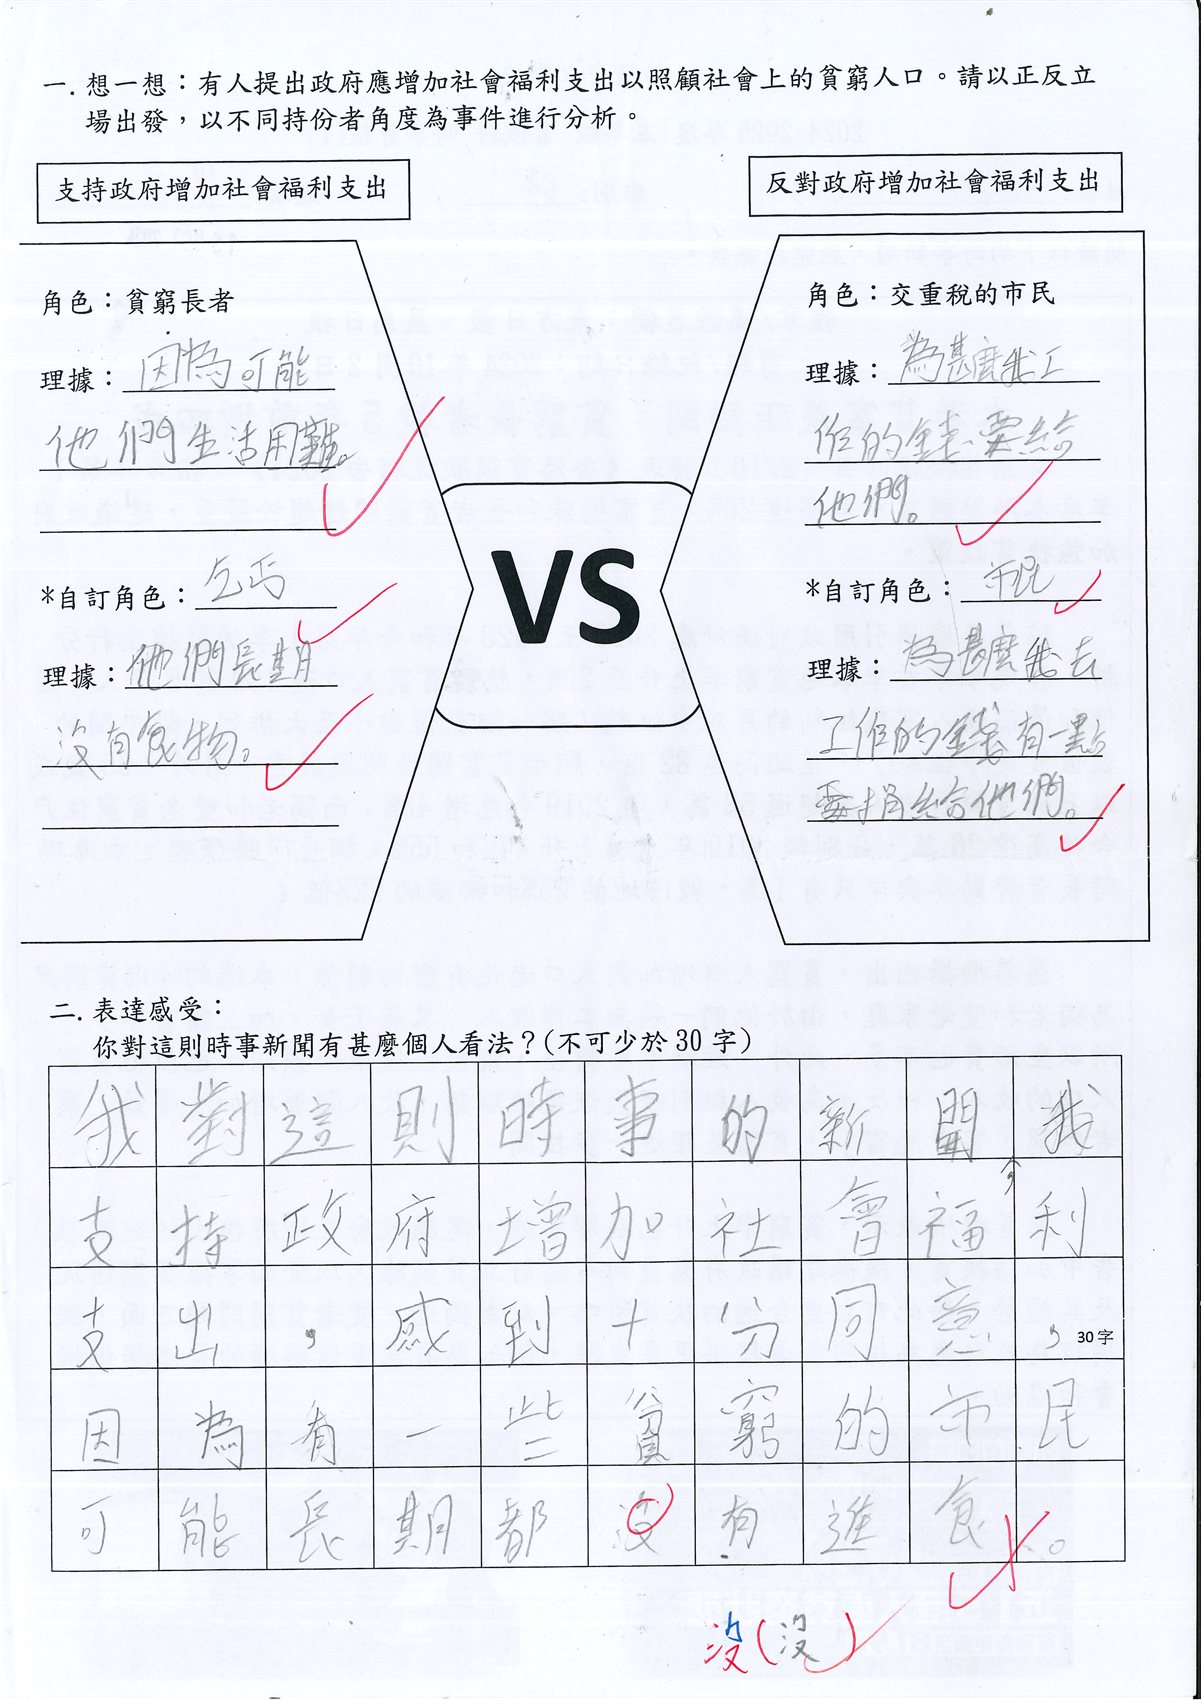 一. 想一想：有人提出政府應增加社會福利支出以照顧社會上的貧窮人口。請以正反立
場出發，以不同持份者角度為事件進行分析。
支持政府增加社會福利支出
角色：貧窮長者
理據：因為可能
他們生活用難。
*自訂角色：乞丐
理據：他們長期
沒有食物。
VS
反對政府增加社會福利支出
角色：交重稅的市民
理據：為甚麼我工
作的錢要給
他們。
*自訂角色：市民
理據：為甚麼我去
工作的錢有一點
要捐給他們。
二. 表達感受：
你對這則時事新聞有甚麼個人看法？(不可少於30字)
我對這則時事的新聞我
支持政府增加社會福利
支出，感到十分同意，30字
因為有一些貧窮的市民
可能長期都沒有進食。
沒(沒)